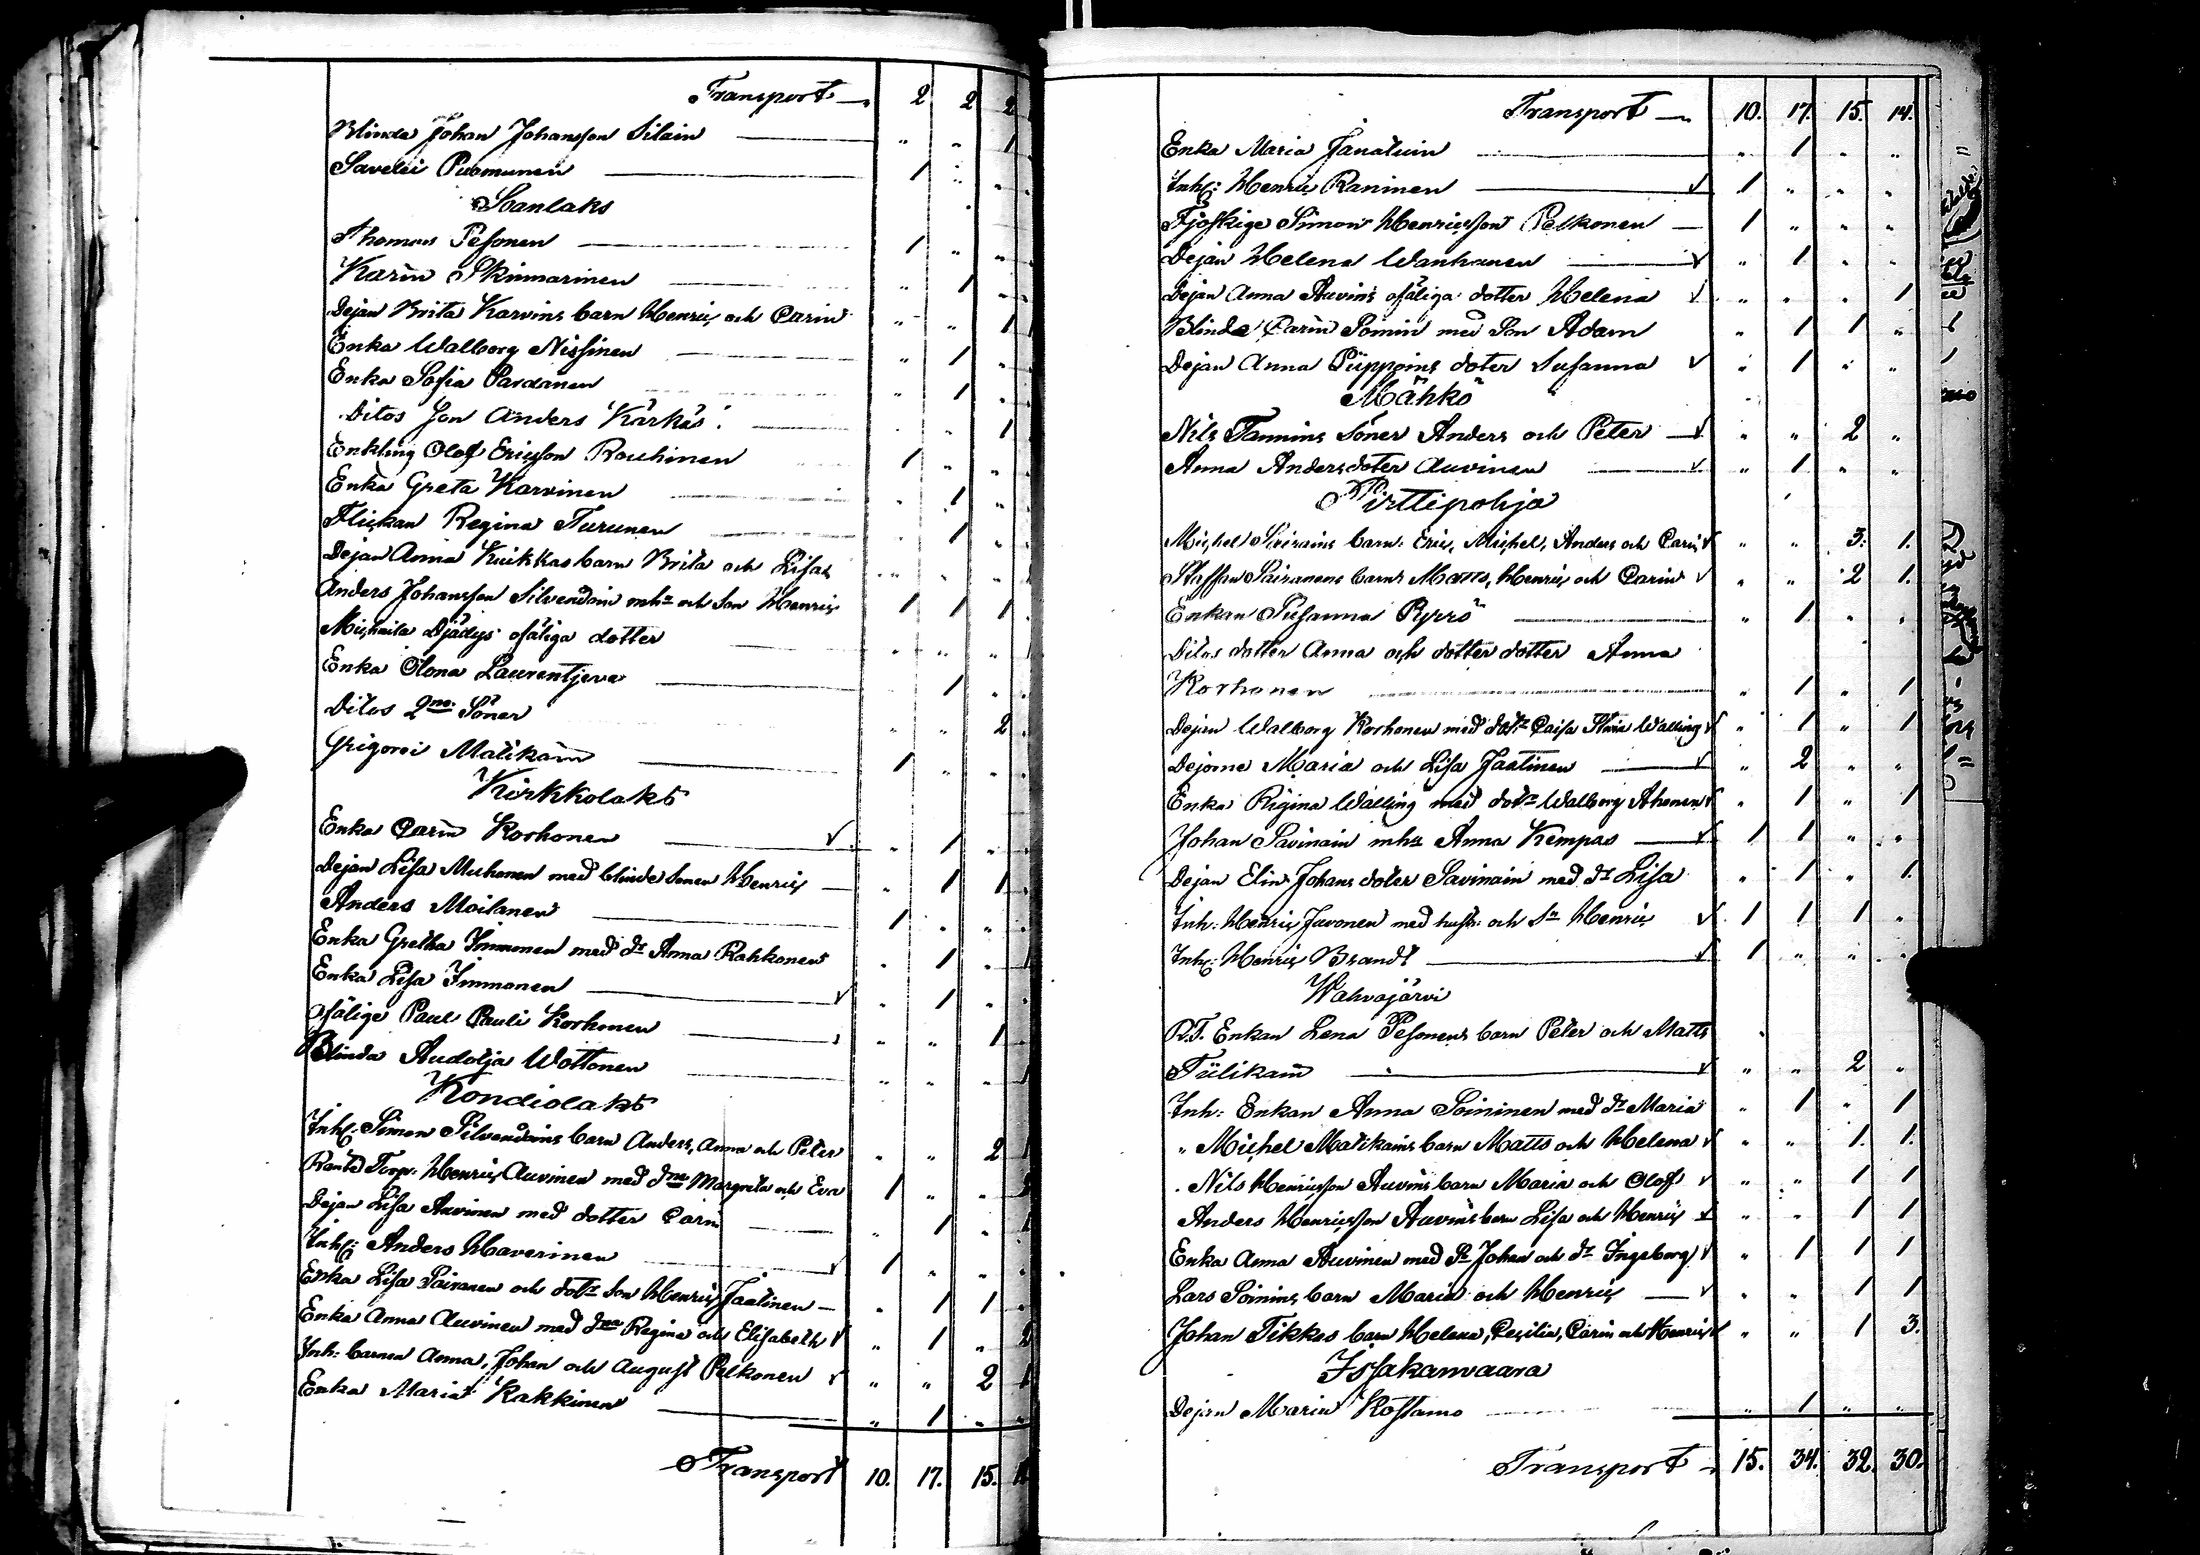 Transport 2 2 2
Blinda Johan Johansson Silain " " 1
Savelei Puomunen 1 " "
Hanlaks
Thomas Pesonen 1 " "
Karin Skinnarinen " 1 "
Dejan Brita Karvins barn Henric och Carin " " 1
Enka Walborg Nissinen " 1 "
Enka Sofia Pardanen " 1 "
Ditos Son Anders Kärkäs " " 1
Enkling Olof Ericsson Rouhinen 1 " "
Enka Greta Karvinen " 1 "
Flickan Regina Turunen " 1 "
Dejan Anna Kuikkas barn Brita och Lisa " " "
Anders Johansson Silvendain mhu och Son Henric 1 1 1
Michaila Djädys ofäliga dotter " " "
Enka Olona Laurentjeva " 1 "
Ditos 2ne Söner " " 2
Grigorei Matikain 1 " "
Kirkkolaks
Enka Carin Korhonen √ " 1 "
Dejan Lisa Muhonen med blinde Sonen Henric " 1 1
Anders Moilanen 1 " "
Enka Gretha Immonen med dr Anna Rahkonen " 1 "
Enka Lisa Immonen √ " 1 "
ofälige Paul Pauli Korhonen " " 1
Blinda Audotja Wottonen " " "
Kondiolaks
Inh: Simon Silvendains barn Anders, Anna och Peter " " 2
Torp: Henric Auvinen med dne Margreta och Eva 1 " "
Dejan Lisa Auvinen med dotter Carin " 1 "
Inh: Anders Haverinen √ 1 " "
Enka Lisa Pairanen och dotr Son Henric Jaatinen " 1 1
Enka Anna Auvinen med dne Regina och Elisabeth √ " 1 "
Inh: barnen Anna, Johan och August Pelkonen √ " " 2
Enka Maria Kakkinen " 1 "
Transport 10. 17. 15.
Transport 10. 17. 15. 14.
Enka Maria Janatuin " 1 " "
Inh: Henric Raninen √ 1 " " "
Fjoskige Simon Henricsson Pelkonen 1 " " "
Dejan Helena Wanhanen √ " 1 " "
Dejan Anna Auvins ofäliga dotter Helena √ " " " 1
Blinda Carin Somin med Son Adam " 1 1 "
Dejan Anna Püppoins doter Susanna √ " 1 " "
Mähkö
Nils Tannins Söner Anders och Peter √ " " 2 "
Anna Andersdoter Auvinen √ " 1 " "
Pirttipohja
Michel Pairains barn Eric, Michel, Anders och Carin √ " " 3. 1.
Staffan Pairanens barn Matts, Henric och Carin √ " " 2 1.
Enkan Susanna Pyrrö " 1 " "
Ditos dotter Anna och dotter dotter Anna
Korhonen " 1 " 1
Dejan Walborg Korhonen med dotr Caisa Stina Walling √ " 1 " 1
Dejorne Maria och Lisa Jaatinen √ " 2 " "
Enka Regina Walling med dotr Walborg Ahonen √ " 1 " 1
Johan Savinain mhu Anna Kempas √ 1 1 " "
Dejan Elin Johansdoter Savinain med dr Lisa " 1 " 1.
Inh: Henric Javonen med hustr: och Sn Henric √ 1 1 1 "
Inh: Henric Brandt √ 1 " " "
Wahvajärvi
R.T. Enkan Lena Pesonens barn Peter och Matts
Tiilikain √ " " 2 "
Inh: Enkan Anna Soininen med dr Maria " 1 " 1
" Michel Matikains barn Matts och Helena √ " " 1. 1.
" Nils Henricsson Auvins barn Maria och Olof √ " " 1 1
Anders Henricsson Auvins barn Lisa och Henric √ " " 1 1
Enka Anna Auvinen med Sr Johan och dr Ingeborg √ " 1 1 1
Lars Soinins barn Maria och Henric √ " " 1 1
Johan Tikkas barn Helena, Cecilia, Carin och Henric √ " " 1 3.
Issakanvaara
Dejan Maria Kossamo " 1 " "
Transport 15. 34. 32. 30.